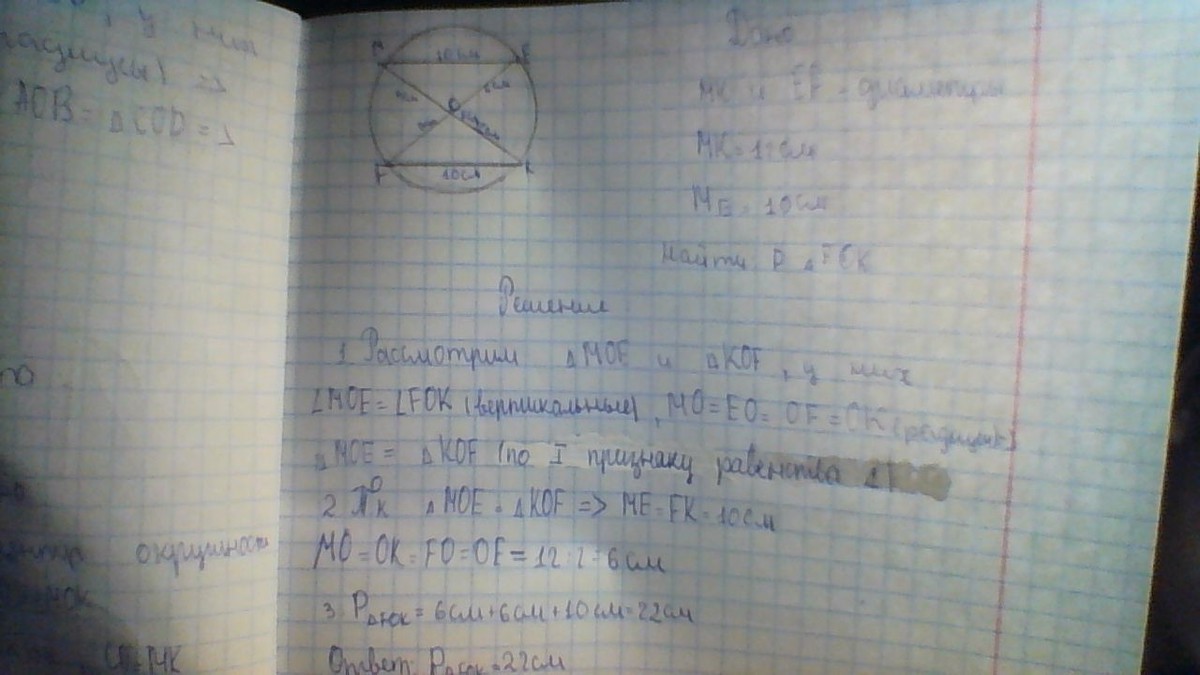 у них
радиусы) =>
AOB = △COD =>
10см
O
10см
Дано
MK и EF - диаметры
MK = 12см
ME = 10см
Найти P △FOK
Решение
1. Рассмотрим △MOE и △KOF, у них
∠MOE = ∠FOK (вертикальные), MO = EO = OF = OK (радиусы)
△MOE = △KOF (по I признаку равенства △)
2. Т.к △MOE = △KOF => ME = FK = 10см
MO = OK = FO = OE = 12:2 = 6см
3. P△FOK = 6см + 6см + 10см = 22см
Ответ: P△FOK = 22см
окружности
MK